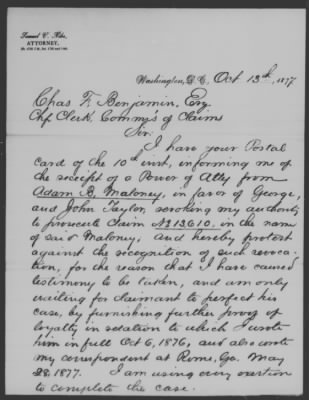 Samuel V.
ATTORNEY,
Washington, D.C., Oct 13th, 1877
Chas F. Benjamin, Esq
Chf Clerk, Comm'rs of Claims
Sir:
I have your Postal
card of the 10th inst, informing me of
the receipt of a Power of Atty from
Adam B. Maloney, in favor of George,
and John Taylor, revoking my authority
to prosecute claim No 13,610, in the name
of said Maloney; And hereby protest
against the recognition of such revoca-
tion, for the reason that I have caused
testimony to be taken, and am only
waiting for claimant to perfect his
case, by furnishing further proof of
loyalty in relation to which I wrote
him in full Oct 6, 1876, and also wrote
my correspondent at Rome, Ga. May
28, 1877. I am using every exertion
to complete the case.